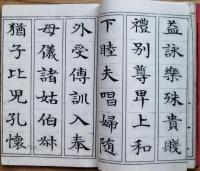 益詠樂殊貴賤
禮別尊卑上和
下睦夫唱婦随
外受傅訓入奉
母儀諸姑伯叔
猶子比兒孔懷